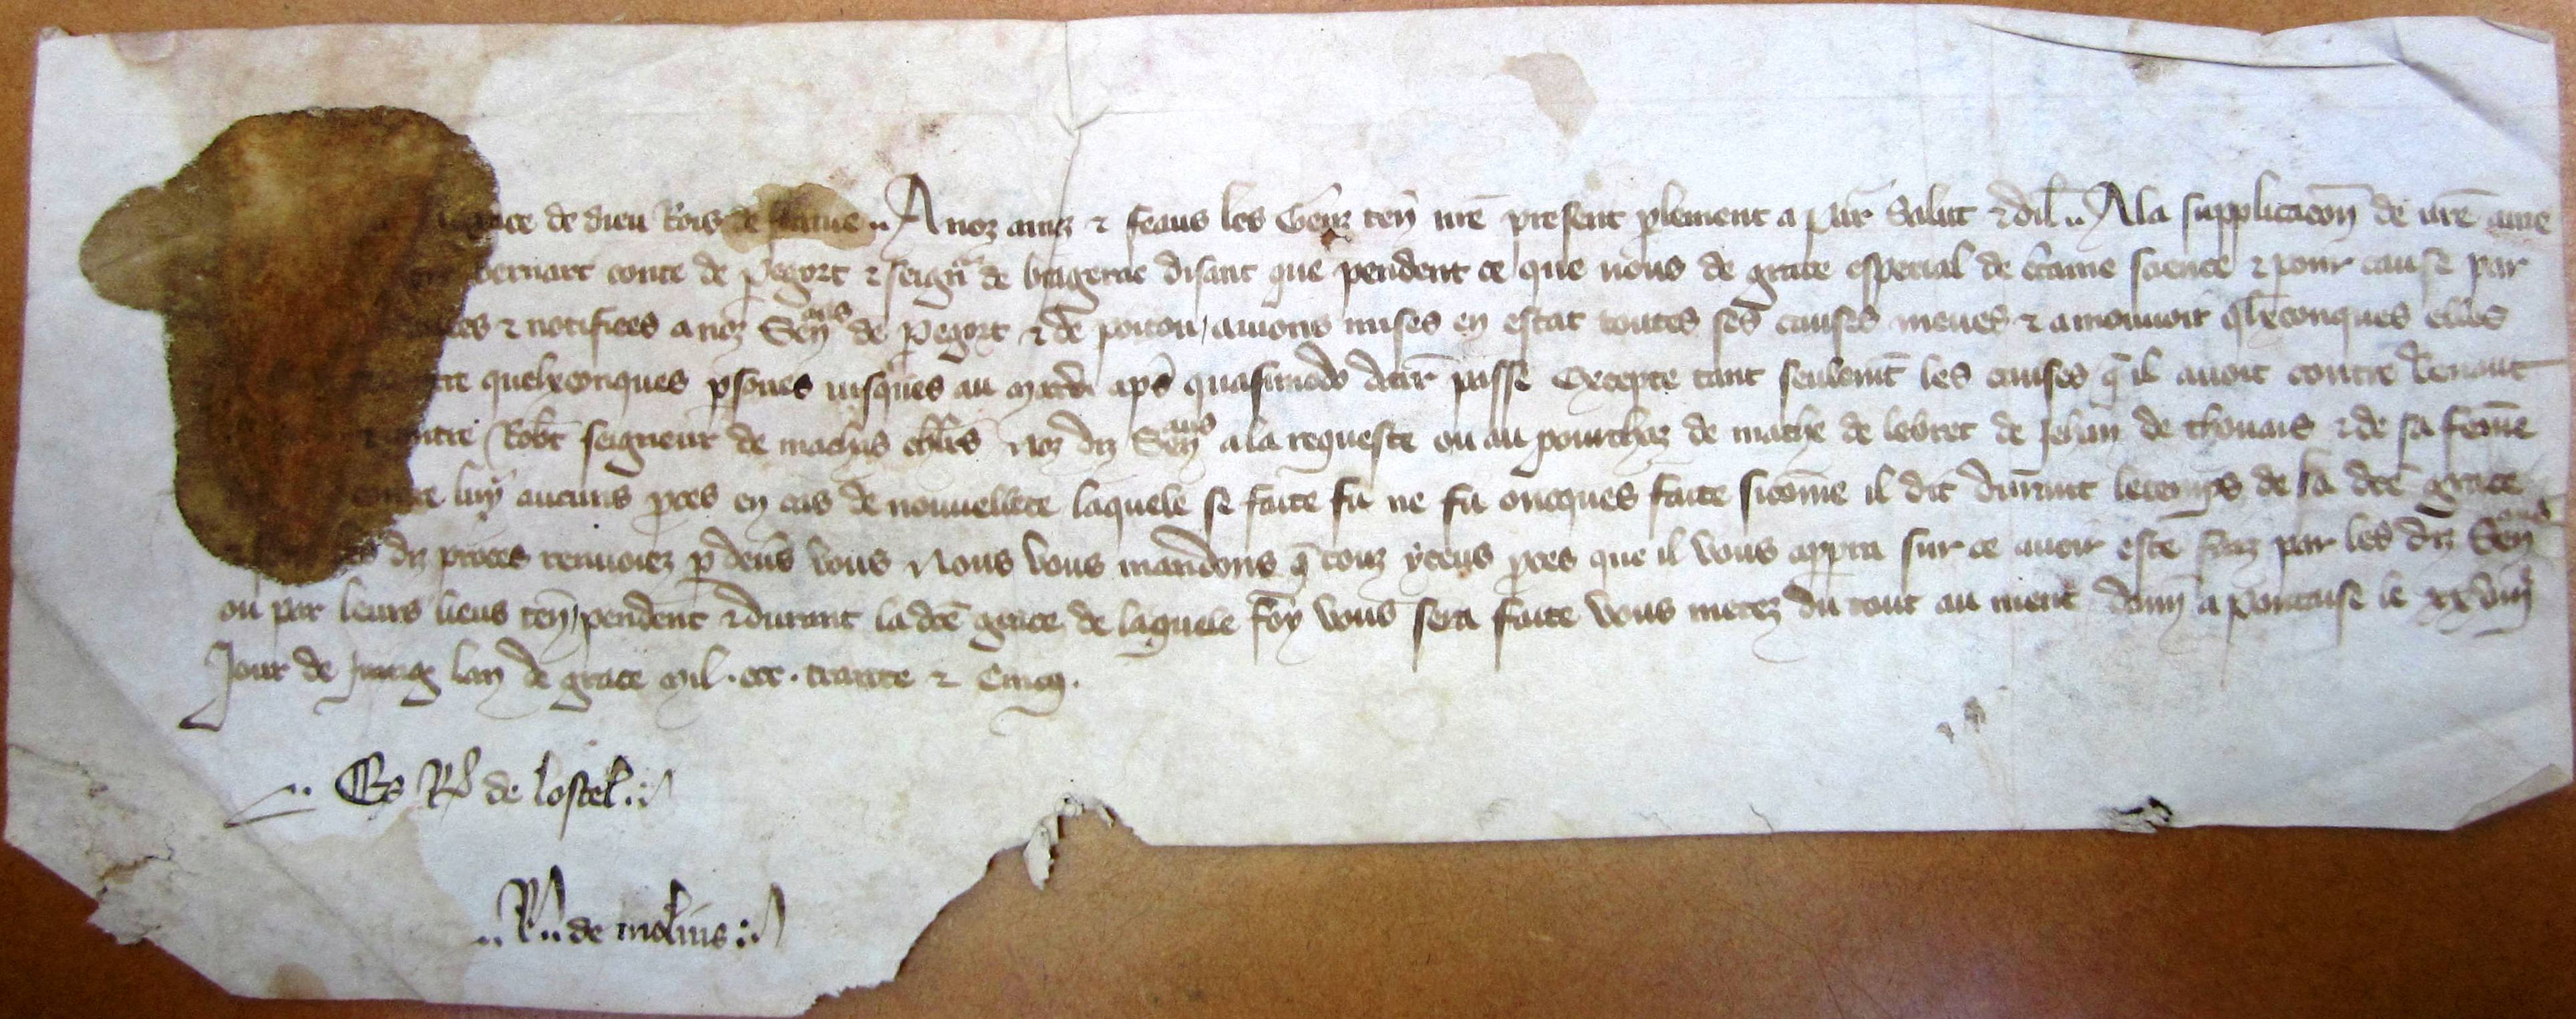 grace de dieu Rois de france .. A noz amez & feaus les Genz ten nre present plement a Par Salut & dil .. A la supplicacon de nre ame
bernart conte de Pegort & seign de bragerac disant que pendent ce que nous de grace especial de ctaine science & pour cause par
& notifiees a noz Senaus de Pegort & de poitou, auions mises en estat toutes ses causes meues & a mouuoir qlxconques elles
quelxconques psones iusques au mardi aps quasimodo darr passe Excepte tant seulemt les causes q il auoit contre
contre Robt seigneur de chlrs noz diz Senaus a la requeste ou au pourchaz de mathe de lebret de Jehan de thouars & de sa feme
contre luy aucuns pces en cas de nouuellete laquele se faite fu ne fu oncques faite sicome il dit durant le temps de la dce grace
diz proces renuoiez p deus vous Nous vous mandons q touz yceus pces que il vous appra sur ce auoir este faiz par les diz Senaus
ou par leurs lieus ten, pendent & durant la dce grace, de laquele foy vous sera faite vous metez du tout au nient donn a Pontaise le xxviii
Jour de Juing lan de grace mil . ccc . trante & Cinq .
.. Es Rs de lostel .:
.. R .. de molins :